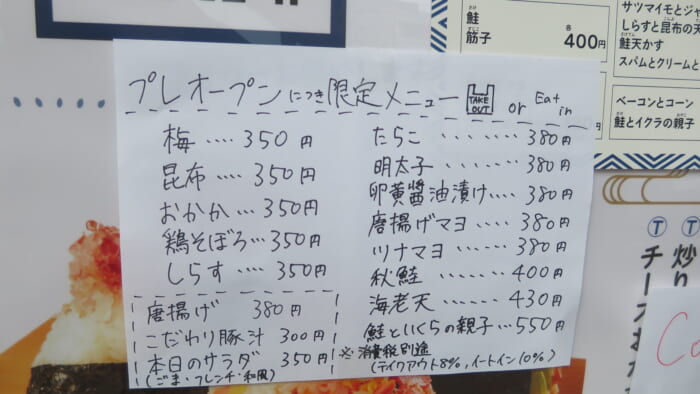 プレオープンにつき限定メニュー TAKE OUT or Eat in
梅‥‥350円
昆布‥‥350円
おかか‥‥350円
鶏そぼろ‥‥350円
しらす‥‥350円
唐揚げ 380円
こだわり豚汁 300円
本日のサラダ 350円
(ごま・フレンチ・和風)
たらこ‥‥‥‥380円
明太子‥‥‥‥380円
卵黄醤油漬け‥‥380円
唐揚げマヨ‥‥380円
ツナマヨ‥‥‥380円
秋鮭‥‥‥‥400円
海老天‥‥‥‥430円
鮭といくらの親子‥‥550円
※消費税別途
(テイクアウト8%,イートイン10%)
鮭
筋子
各400円
サツマイモとジャ
しらすと昆布の天
鮭天かす
スパムとクリームと
ベーコンとコーン
鮭とイクラの親子
Ⓣ Ⓣ
炒り
チーズおか